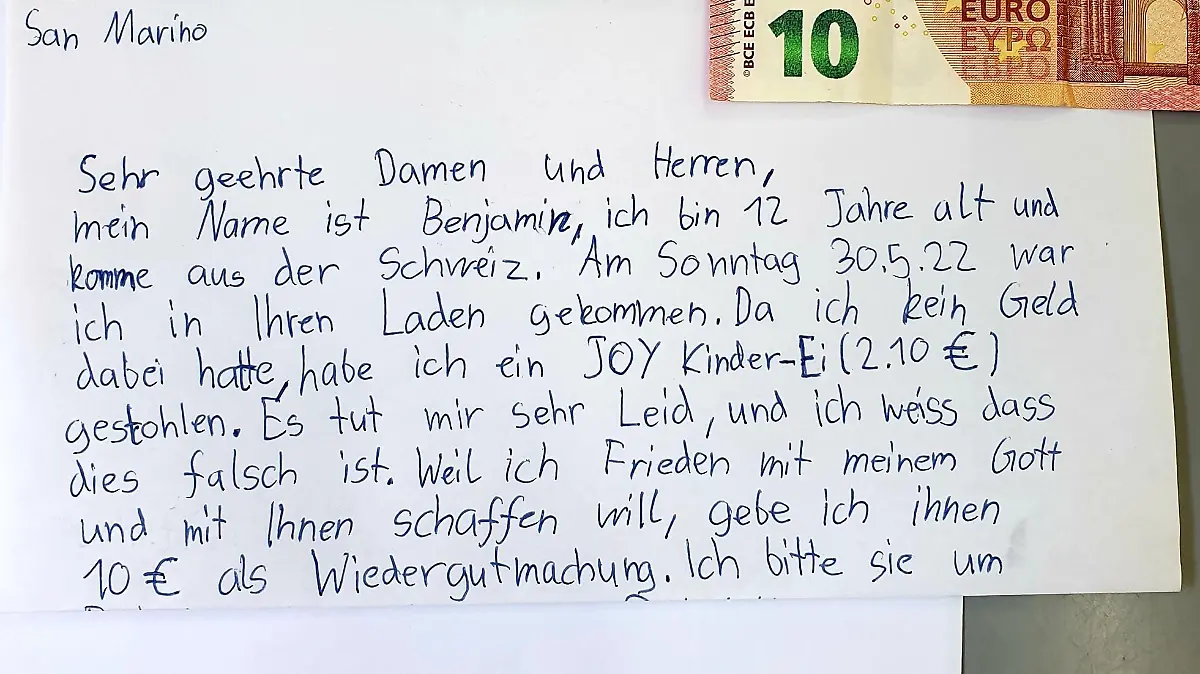 San Marino
©BCE ECB E
10
EURO
ΕΥΡΩ
ЕВРО
Sehr geehrte Damen und Herren,
mein Name ist Benjamin, ich bin 12 Jahre alt und
komme aus der Schweiz. Am Sonntag 30.5.22 war
ich in Ihren Laden gekommen. Da ich kein Geld
dabei hatte, habe ich ein JOY Kinder-Ei (2.10 €)
gestohlen. Es tut mir sehr Leid, und ich weiss dass
dies falsch ist. Weil ich Frieden mit meinem Gott
und mit Ihnen schaffen will, gebe ich ihnen
10 € als Wiedergutmachung. Ich bitte sie um